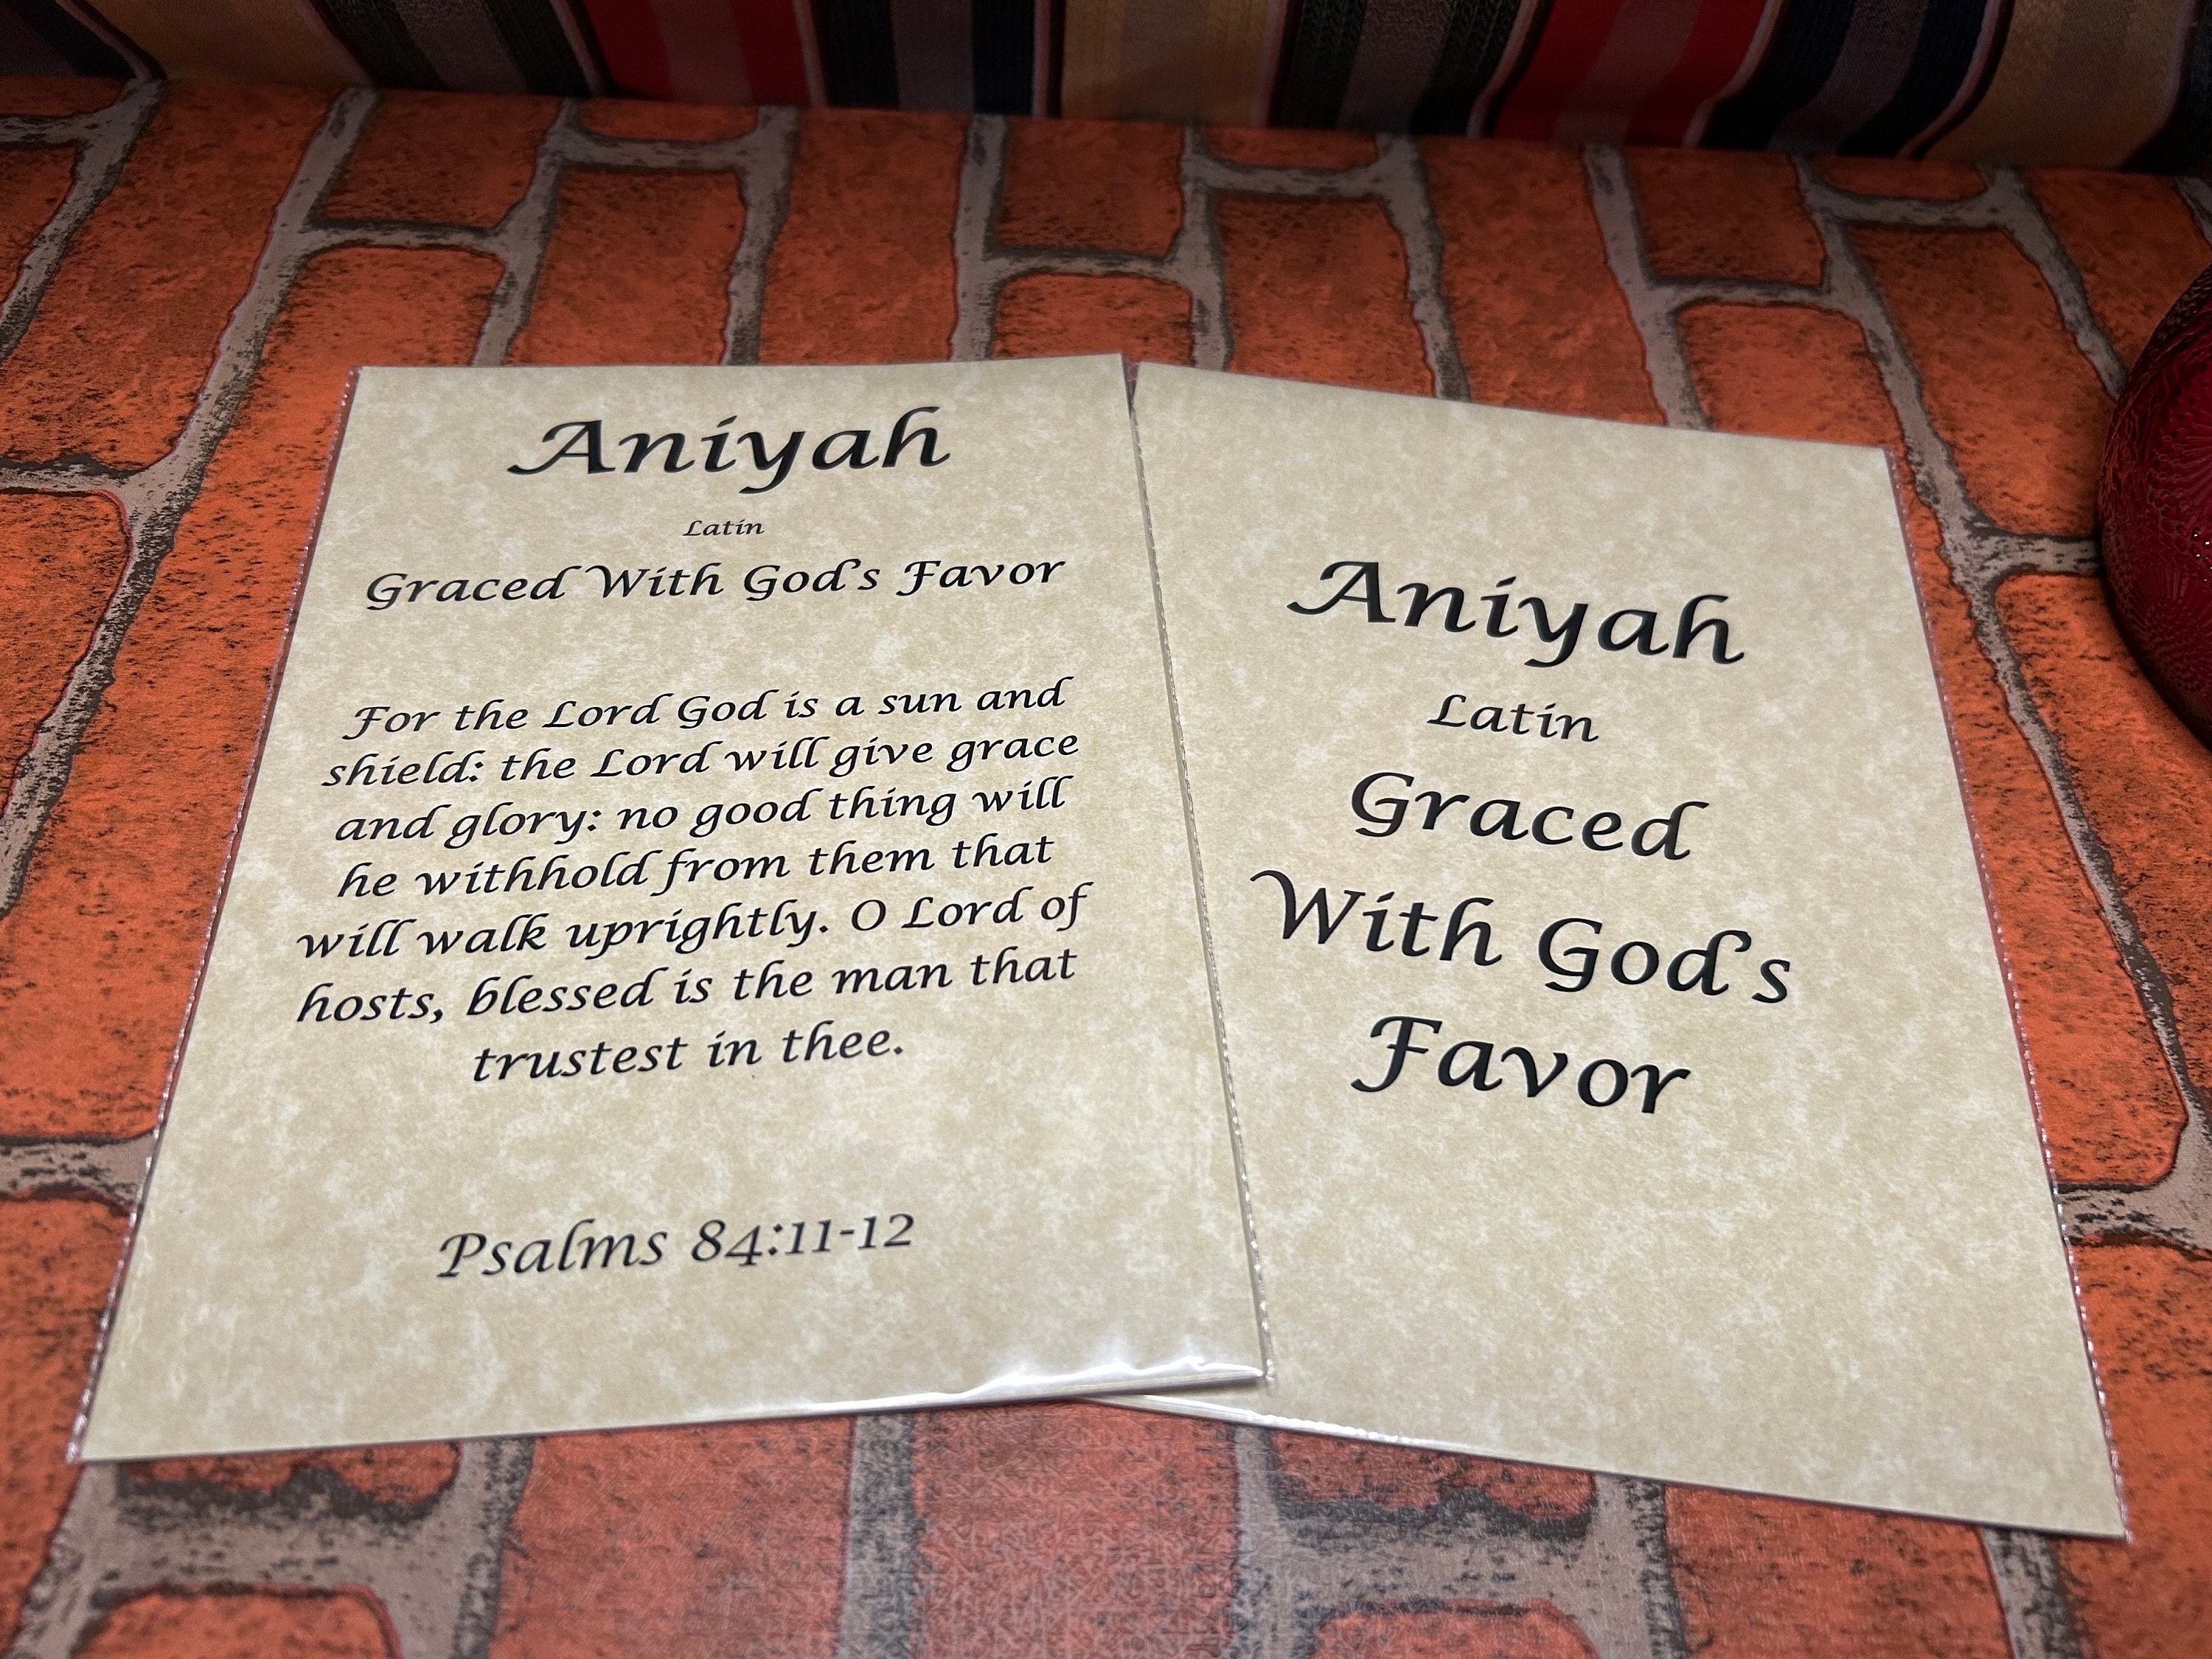 Aniyah
Latin
Graced With God's Favor
For the Lord God is a sun and
shield: the Lord will give grace
and glory: no good thing will
he withhold from them that
will walk uprightly. O Lord of
hosts, blessed is the man that
trustest in thee.
Psalms 84:11-12
Aniyah
Latin
Graced
With God's
Favor